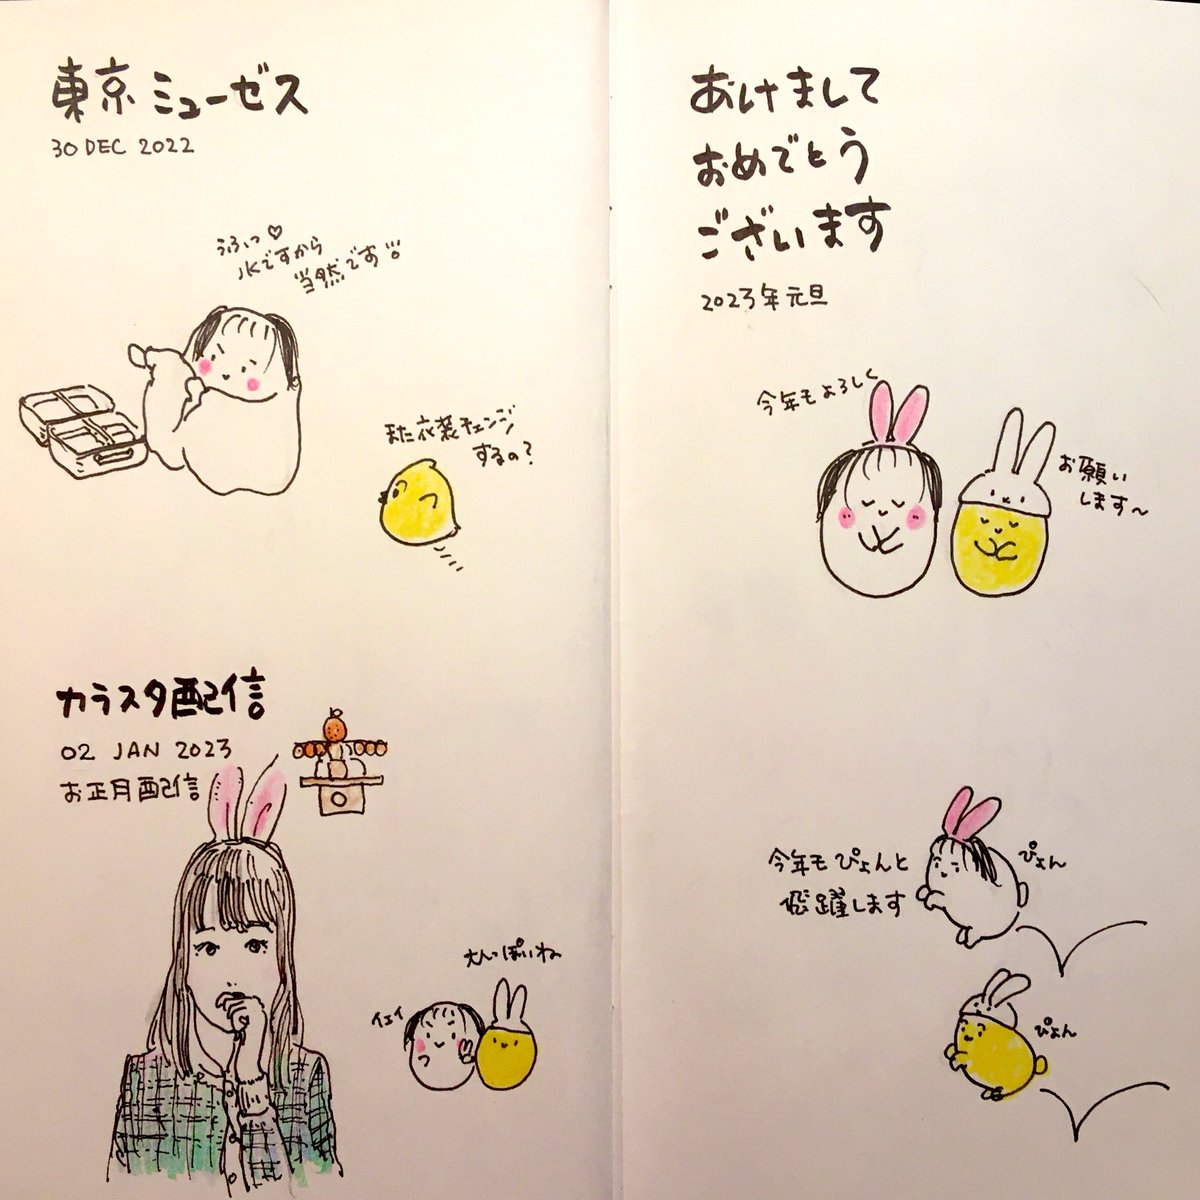 東京ミューゼス
30 DEC 2022
うふっ♡
JKですから
当然です
また衣装チェンジ
するの?
カラスタ配信
02 JAN 2023
お正月配信
イェイ
大人っぽいね
あけまして
おめでとう
ございます
2023年元旦
今年もよろしく
お願い
します〜
今年もぴょんと
飛躍します
ぴょん
ぴょん